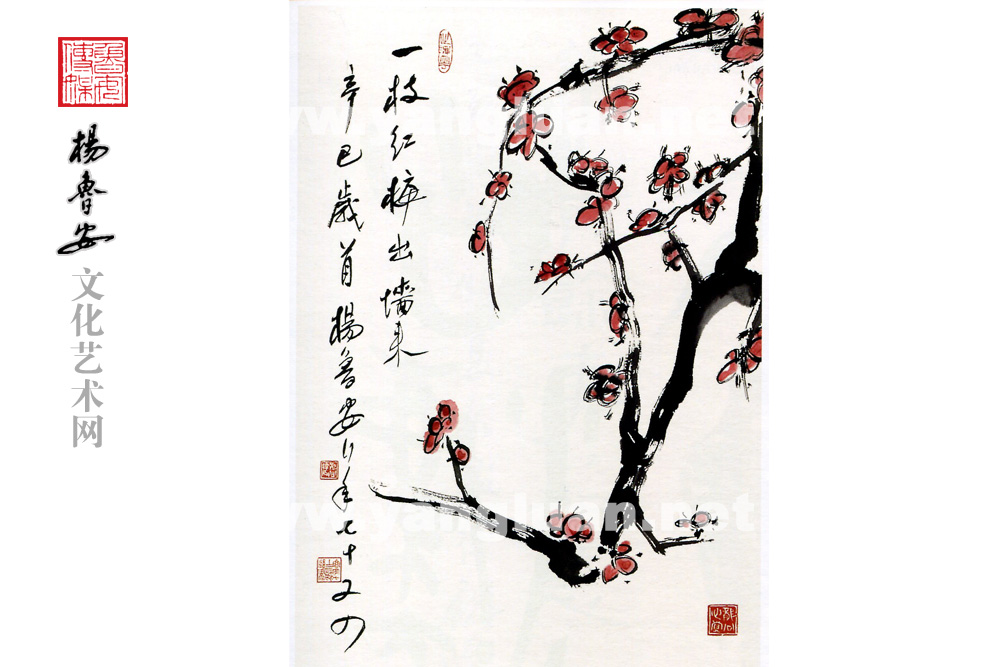 魯安
傳媒
楊魯安
文化艺术网
一枝红梅出墻来
辛巳歲首楊魯安行年七十又四
www.yangluan.net
www.yangluan.net